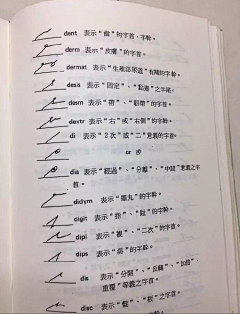 dent 表示“齒”的字首、字幹。
derm 表示“皮膚”的字首。
dermat 表示“生殖泌尿道”有關的字幹。
desis 表示“固定”、“黏連”之字尾。
desm 表示“帶”、“韌帶”的字首。
dextr 表示“右”或“右側”的字幹。
di 表示“2次”或“二”意義的字首。
or
dia 表示“經過”、“分離”、“中間”意義之字
首。
didym 表示“睪丸”的字幹。
digit 表示“指”、“趾”的字幹。
dipl 表示“複”、“二次”的字首。
dips 表示“渴”的字幹。
dis 表示“分開”、“反轉”、“加倍”、
重覆”等義之字首。
disc 表示“盤”、“板”之字首。